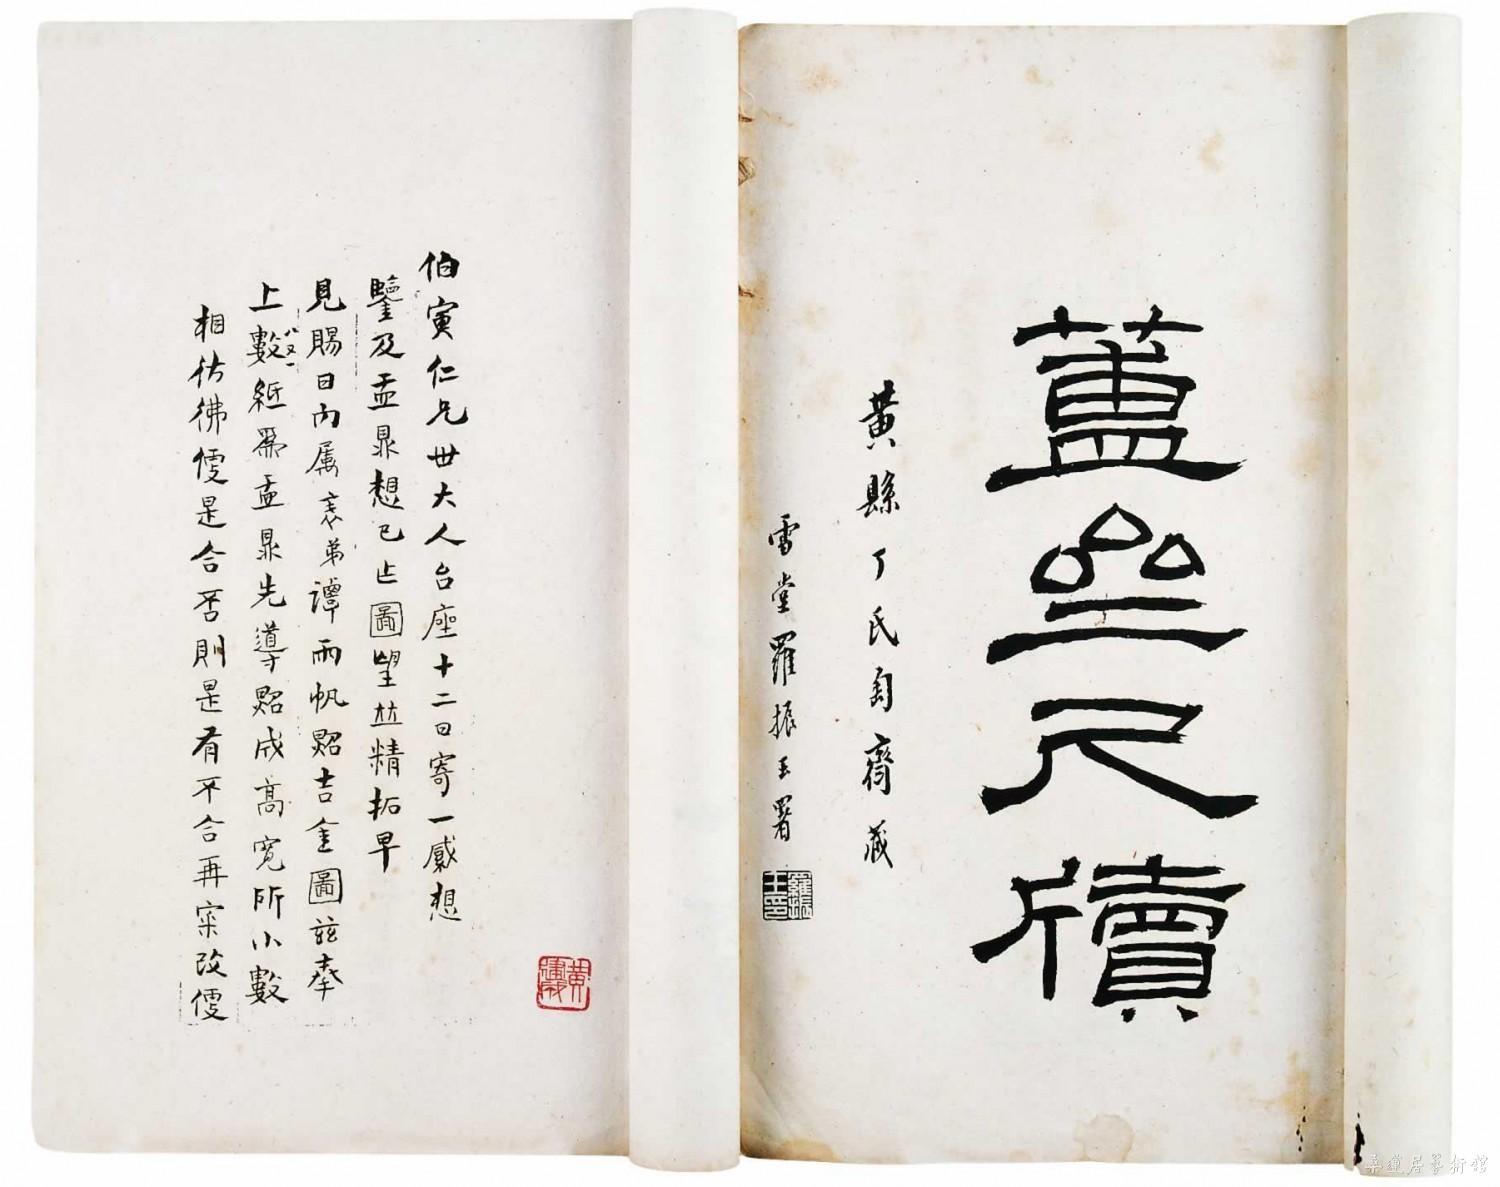 簠齋尺牘
黃縣丁氏匋齋藏
雪堂羅振玉署
羅振玉印
伯寅仁兄世大人台座十二日寄一感想
鑒及盂鼎想已乍圖望並精拓早
見賜日內屬表弟譚雨帆照吉金圖茲奉
上數紙為盂鼎先導照成高寬所小數
相彷彿便是合否則是有不合再寀改便
桑蓮居藝術館